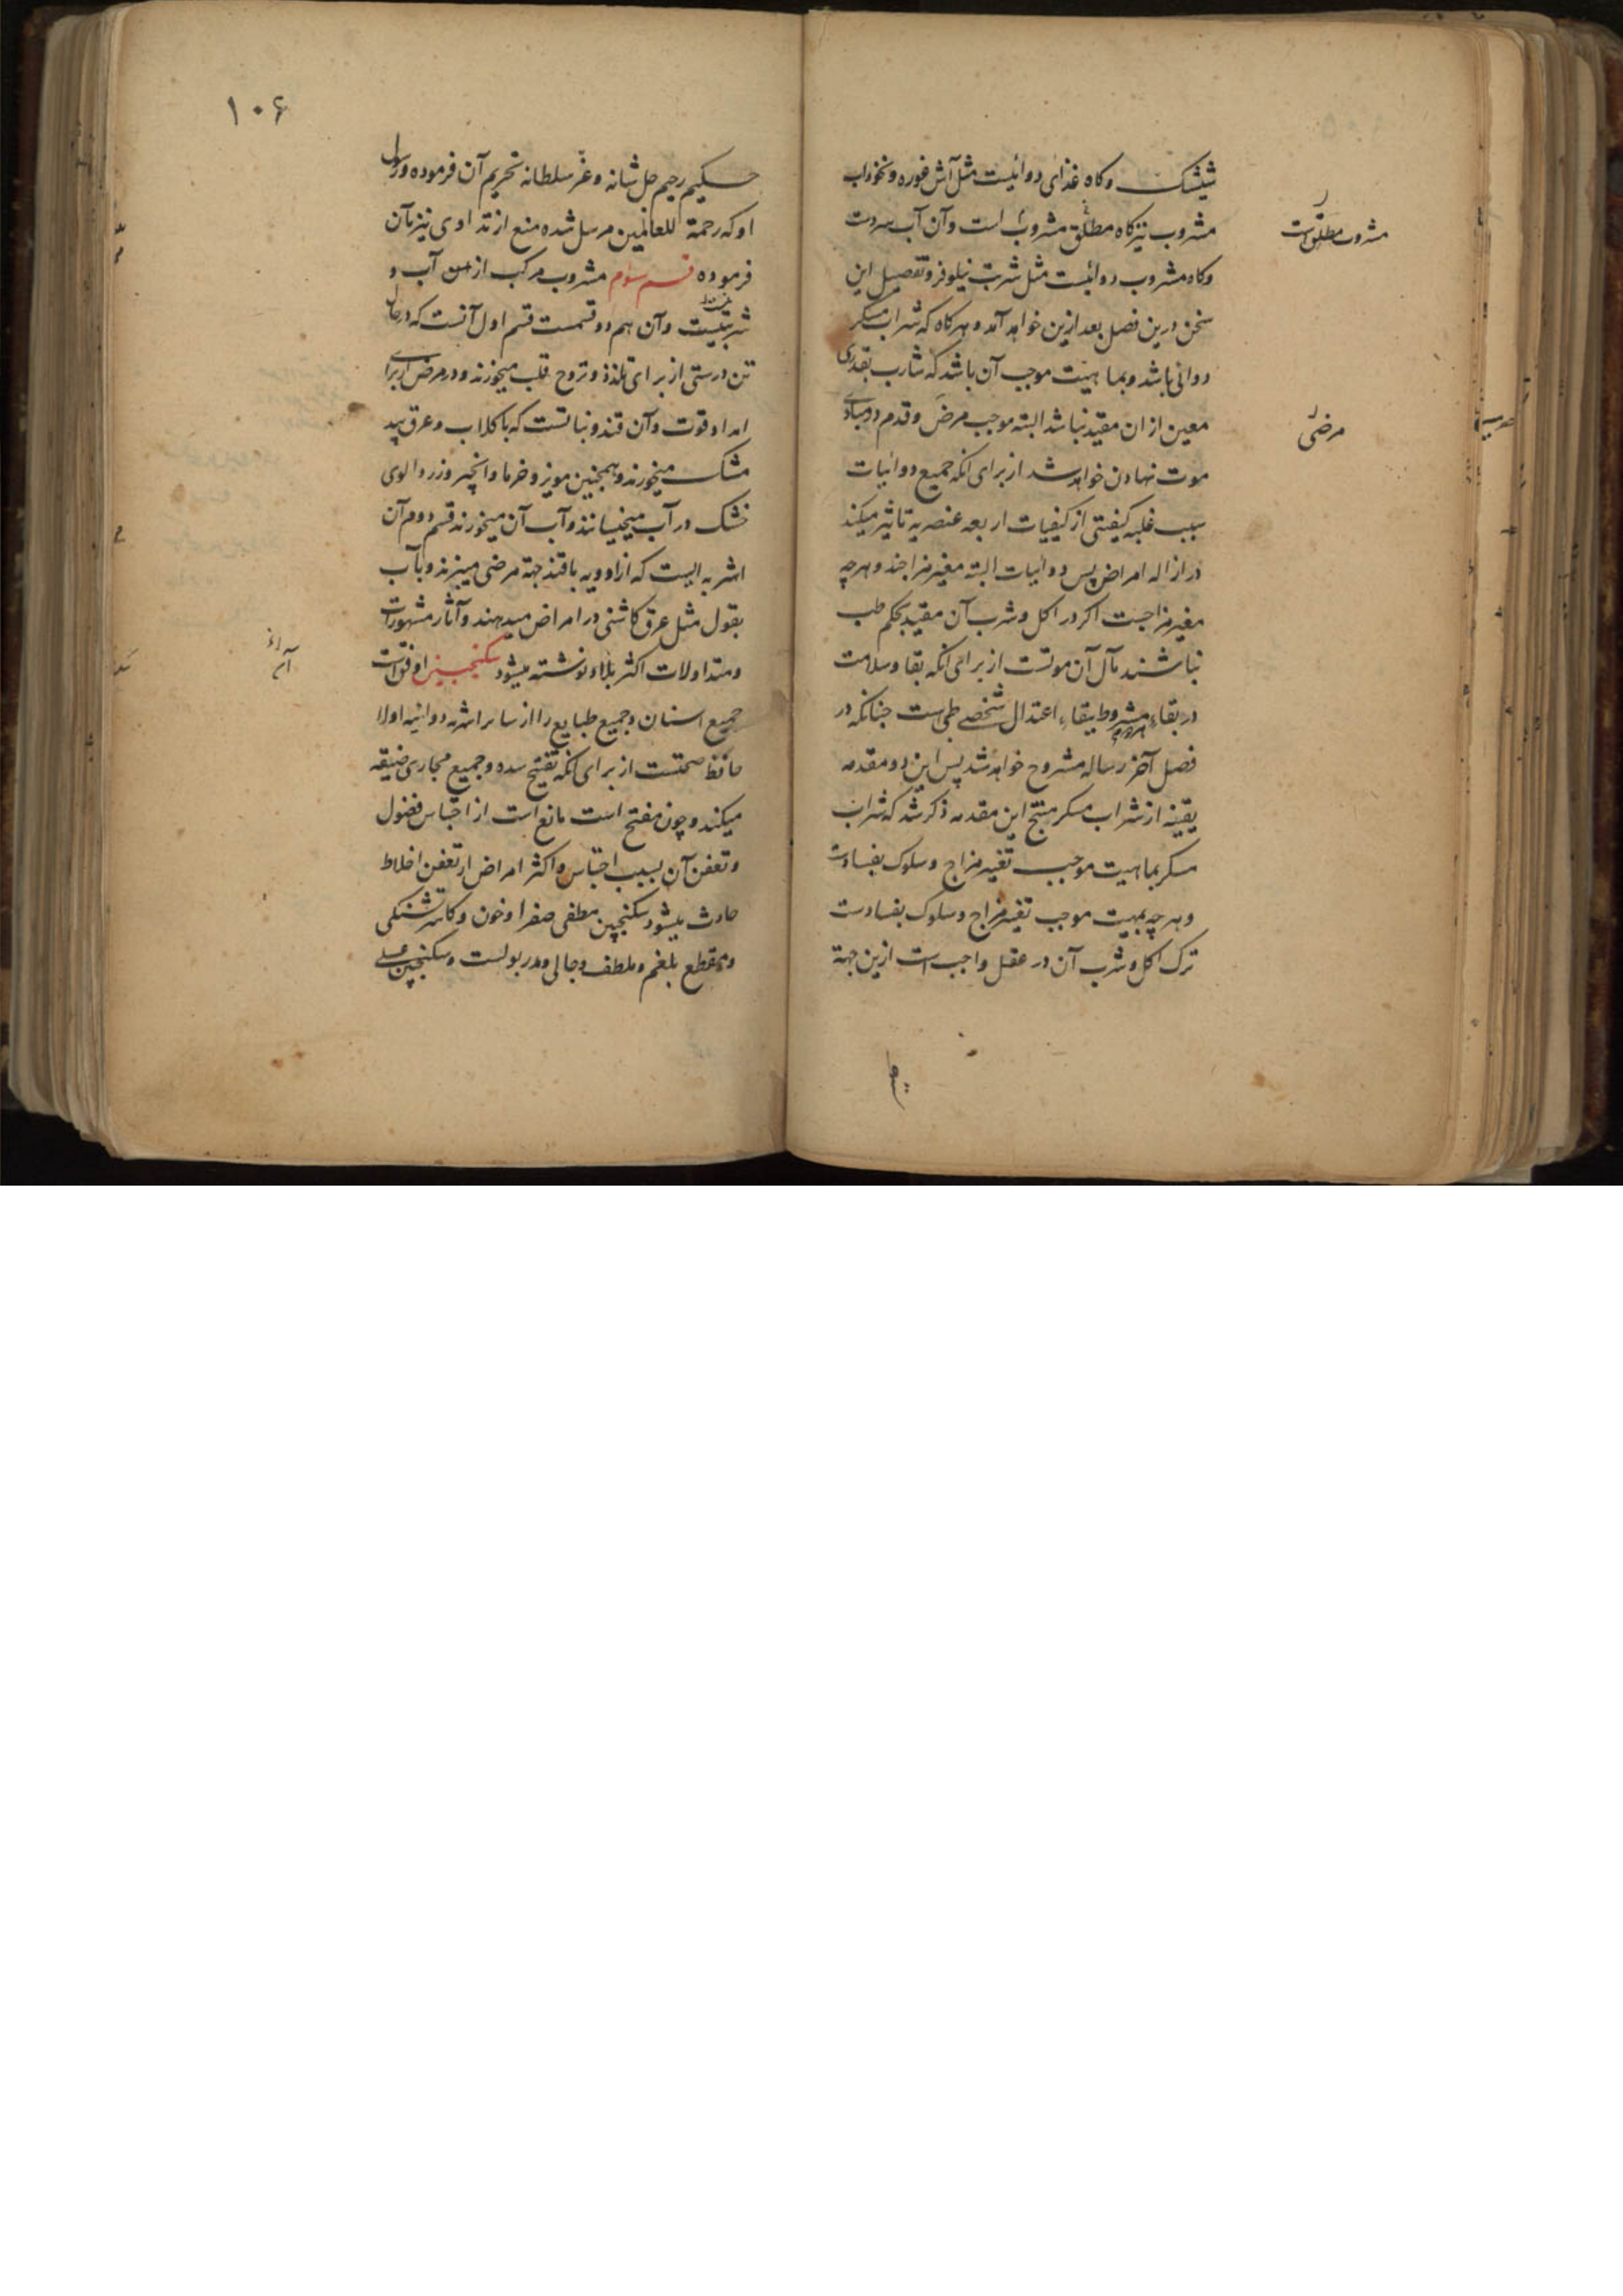 ششک وکاه غذای دوائیست مثل آش غوره ونخوداب
مشروب نیز کاه مطلق مشروب است وآن آب سردست
وکاه مشروب دوائیست مثل شربت نیلوفر وتفصیل این
سخن درین فصل بعد ازین خواهد آمد وهرکاه که شراب مسکر
دوائی باشد وبماهیت موجب آن باشد که شارب بقدری
معین از ان مقید نباشد البته موجب مرض وقدم در مبادی
موت نهادن خواهد شد از برای انکه جمیع دوائیات
بسبب غلبه کیفیتی از کیفیات اربعه عنصریه تاثیر میکند
در ازاله امراض پس دوائیات البته مغیر مزاجند وهرچه
مغیر مزاجست اکر در اکل وشرب آن مقید بحکم طب
نباشند مآل آن موتست از برای انکه بقا وسلامت
در بقاء مشروط ببقاء اعتدال شخصی طبی است چنانکه در
فصل آخر رساله مشروح خواهد شد پس این دو مقدمه
یقینه از شراب مسکر منتج این مقدمه ذکر شد که شراب
مسکر بماهیت موجب تغیر مزاج وسلوک بفسادست
وهرچه بمهیت موجب تغیر مزاج وسلوک بفسادست
ترک اکل وشرب آن در عقل واجب است ازین جهة
مشروب مطلق است
مرضی
۱۰۶
حکیم رحیم جل شانه وعز سلطانه تحریم آن فرموده ورسول
او که رحمة للعالمین مرسل شده منع از تداوی نیز بآن
فرموده قسم سوم مشروب مرکب از آب و
شربتیست وآن هم دو قسمست قسم اول آنست که در حال
تن درستی از برای تلذذ وتروح قلب میخورند ودر مرض از برای
امداد قوت وآن قند ونباتست که با کلاب وعرق بید
مشک میخورند وهمچنین مویز وخرما وانجیر وزردالوی
خشک در آب میخیسانند وآب آن میخورند قسم دوم آن
اشربه ایست که از ادویه با قند جهة مرضی میپزند وبا آب
بقول مثل عرق کاشنی در امراض میدهند وآثار مشهورات
ومتداولات اکثر بلاد نوشته میشود سکنجبین اوفق است
جمیع اسنان وجمیع طبایع را از سایر اشربه دوائیه اولا
حافظ صحتست از برای انکه تفتیح سده وجمیع مجاری ضیقه
میکند وچون مفتح است مانع است از احتباس فضول
وتعفن آن بسبب احتباس واکثر امراض از تعفن اخلاط
حادث میشود سکنجبین مطفی صفرا وخون وکاسر تشنکی
ومقطع بلغم وملطف وجالی ومدر بولست وسکنجبین عسلی